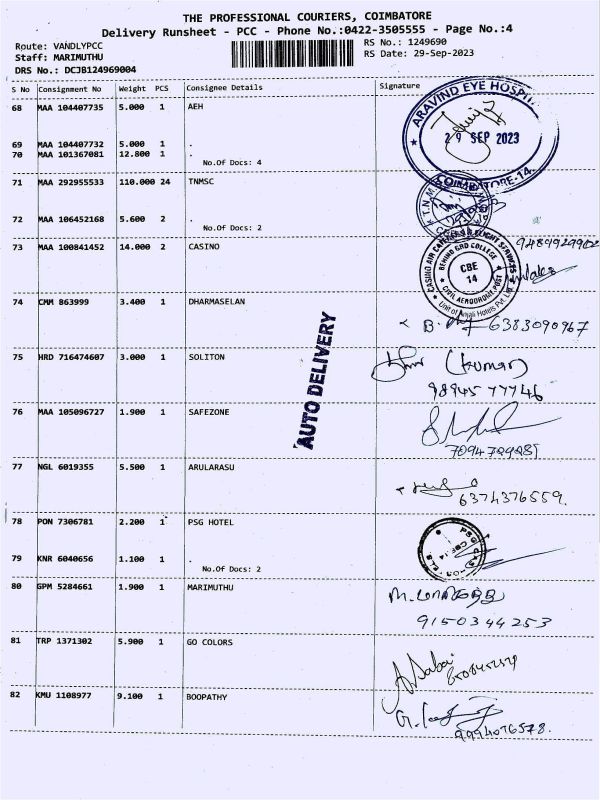 THE PROFESSIONAL COURIERS, COIMBATORE
Delivery Runsheet - PCC - Phone No.:0422-3505555 - Page No.:4
Route: VANDLYPCC
RS No.: 1249690
Staff: MARIMUTHU
RS Date: 29-Sep-2023
DRS No.: DCJB124969004
S No Consignment No Weight PCS Consignee Details Signature
68 MAA 104407735 5.000 1 AEH
ARAVIND EYE HOSPI
29 SEP 2023
COIMBATORE-14.
69 MAA 104407732 5.000 1 .
70 MAA 101367081 12.800 1 .
No.Of Docs: 4
71 MAA 292955533 110.000 24 TNMSC
72 MAA 106452168 5.600 2 .
No.Of Docs: 2
73 MAA 100841452 14.000 2 CASINO
CASINO AIR CATERERS & FLIGHT SERVICES
BEHIND GRD COLLEGE
CBE
14
CIVIL AERODROME POST
Unit of Anjali Hotels Pvt. Ltd.
74 CMM 863999 3.400 1 DHARMASELAN
6383090967
AUTO DELIVERY
75 HRD 716474607 3.000 1 SOLITON
(kumar)
98945 77746
76 MAA 105096727 1.900 1 SAFEZONE
77 NGL 6019355 5.500 1 ARULARASU
6374376559.
78 PON 7306781 2.200 1 PSG HOTEL
79 KNR 6040656 1.100 1 .
No.Of Docs: 2
80 GPM 5284661 1.900 1 MARIMUTHU
9150344253
81 TRP 1371302 5.900 1 GO COLORS
82 KMU 1108977 9.100 1 BOOPATHY
9994076578.